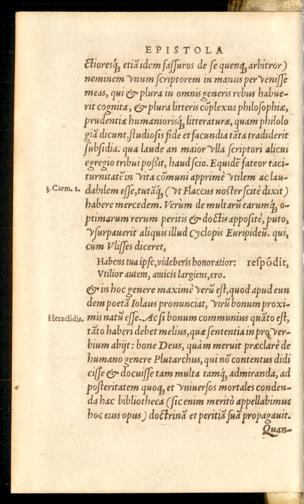 EPISTOLA
ctioresq́, etiā idem fassuros de se quenq́, arbitror)
neminem vnum scriptorem in manus peruenisse
meas, qui & plura in omni genere rebus habue-
rit cognita, & plura litteris cōplexus philosophiæ,
prudentiæ humaniorisq́, litteraturæ, quam philolo
giā dicunt, studiosis fide et facundia tāta tradiderit
subsidia. qua laude an maior vlla scriptori alicui
egregio tribui possit, haud scio. Equidē fateor taci-
turnitatē in vita cōmuni apprimè vtilem ac lau-
3. Carm. 2. dabilem esse, tutāq́, (vt Flaccus noster scitè dixit)
habere mercedem. Verùm de multarū earumq́, o-
ptimarum rerum peritis & doctis appositè, puto,
vsurpauerit aliquis illud Cyclopis Euripideū. qui,
cùm Vlisses diceret,
Habens tua ipse, videberis honoratior: respōdit,
Vtilior autem, amicis largiens, ero.
& in hoc genere maximè verū est, quod apud eun
dem poetā Iolaus pronunciat, virū bonum proxi-
Heraclidis. mis natū esse. Ac si bonum communius quāto est,
tāto haberi debet melius, quæ sententia in prouer-
bium abijt: bone Deus, quàm meruit præclarè de
humano genere Plutarchus, qui nō contentus didi
cisse & docuisse tam multa tamq́, admiranda, ad
posteritatem quoq́, et vniuersos mortales conden-
da hac bibliotheca (sic enim meritò appellabimus
hoc eius opus) doctrinā et peritiā suā propagauit.
Quan-